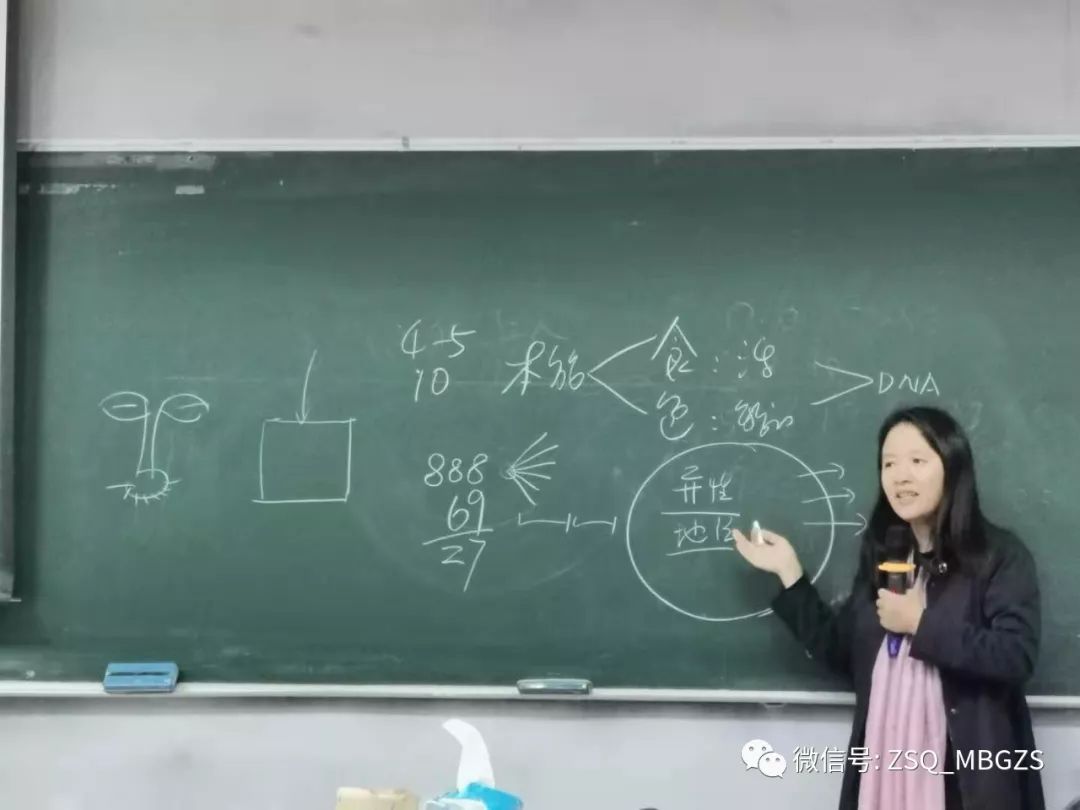 4-5
10
本能
食:活
色:
DNA
888
69
27
异性
地位
微信号: ZSQ_MBGZS